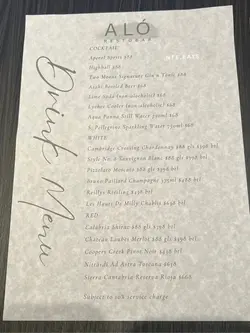 ALÓ
RESTOBAR
COCKTAIL
Aperol Spritz $88
Highball $88
Two Moons Signature Gin n Tonic $88
Asahi Bottled Beer $68
Lime Soda (non alcoholic) $68
Lychee Cooler (non alcoholic) $68
Aqua Panna Still Water 750ml $68
S. Pellegrino Sparkling Water 750ml $68
WHITE
Cambridge Crossing Chardonnay $88 gls $398 btl
Style No. 6 Sauvignon Blanc $88 gls $398 btl
Moscato $88 gls $398 btl
Bruno Paillard Champagne $728 btl
Reillys Riesling $438 btl
Les Hauts De Milly Chablis $698 btl
RED
Calabria Shiraz $88 gls $398 btl
Chateau Merlot $88 gls $398 btl
Coopers Creek Pinot Noir $438 btl
Ad Astra Toscana $638
Sierra Cantabria Reserva Rioja $668
Subject to 10% service charge
Drink Menu